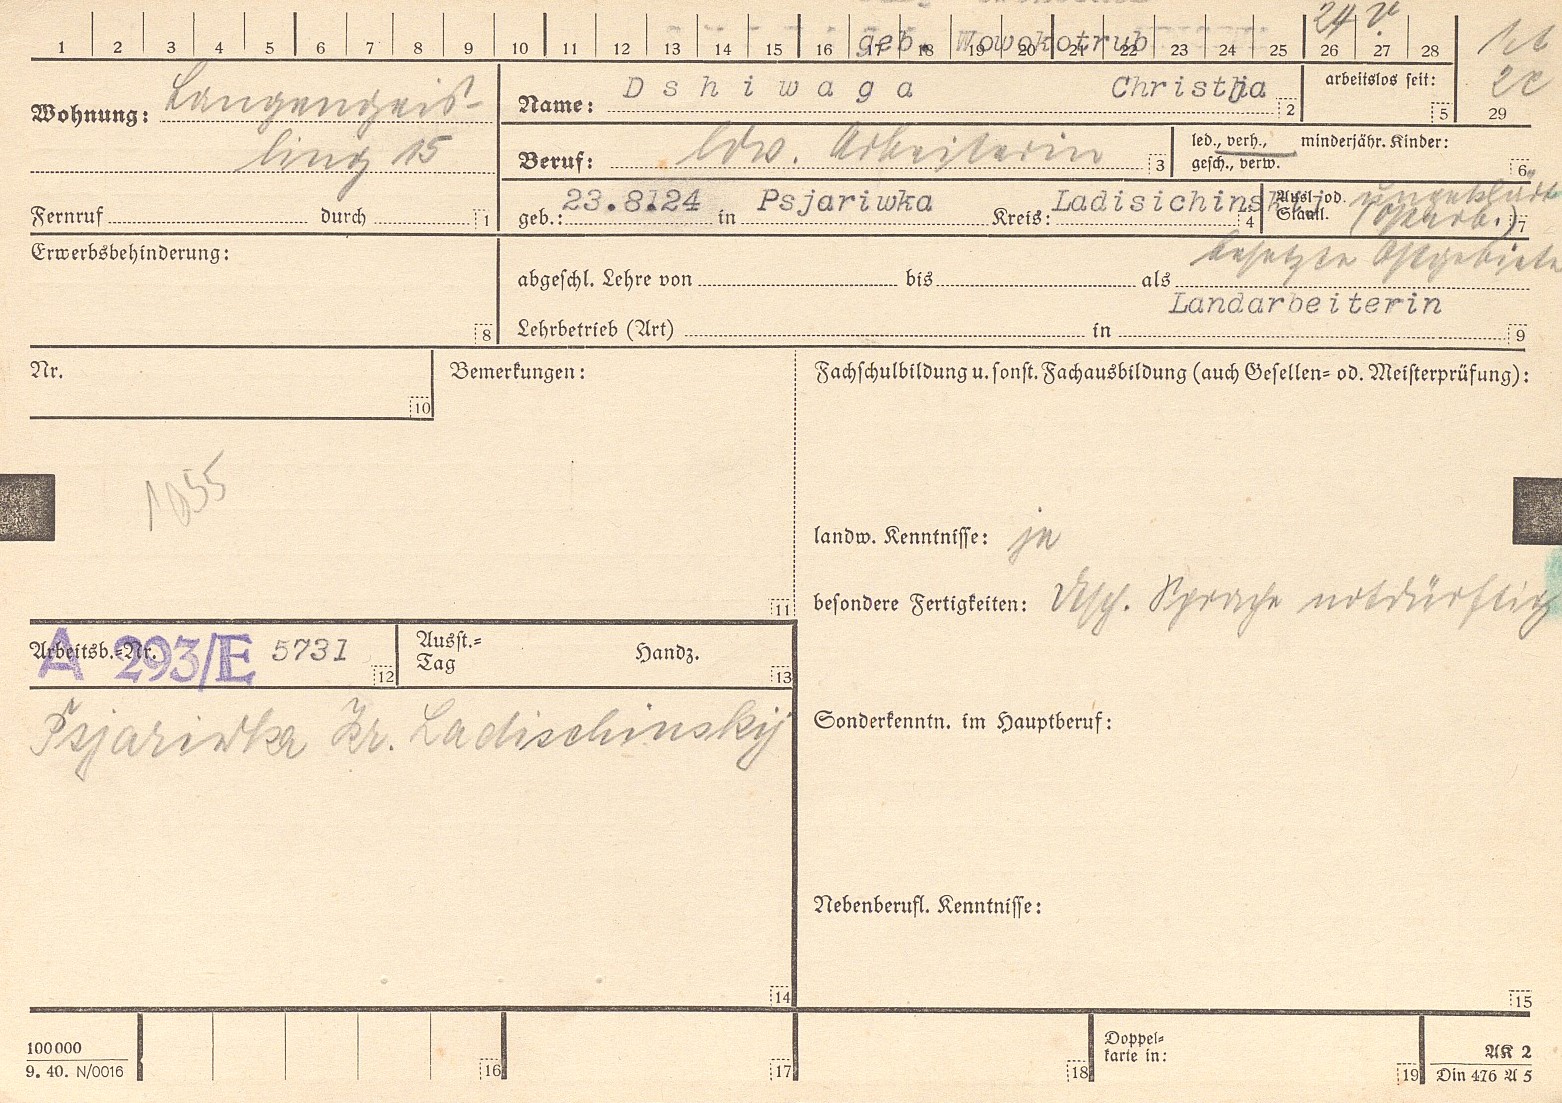 24 V.
1 2 3 4 5 6 7 8 9 10 11 12 13 14 15 16 17 18 19 20 21 22 23 24 25 26 27 28
geb. Wowokotrub
29
Wohnung: Langengeis-
ling 15
Fernruf durch 1
Name: Dshiwaga Christja 2
arbeitslos seit: 5
Beruf: ldw. Arbeiterin 3
led., verh., minderjähr. Kinder:
gesch., verw. 6
geb.: 23.8.24 in Psjariwka Kreis: Ladisichinskij 4
Ausl. od.
Staatl. ungeklärt
(Ostarb.) 7
besetzte Ostgebiete
Erwerbsbehinderung: 8
abgeschl. Lehre von bis als
Landarbeiterin
Lehrbetrieb (Art) in 9
Nr. 10
Bemerkungen: 11
1055
Fachschulbildung u. sonst. Fachausbildung (auch Gesellen- od. Meisterprüfung):
landw. Kenntnisse: ja
besondere Fertigkeiten: dtsch. Sprache notdürftig
Sonderkenntn. im Hauptberuf:
Nebenberufl. Kenntnisse:
15
Arbeitsb.-Nr. A 293/E 5731 12
Ausst.-
Tag Handz. 13
Psjariwka Kr. Ladischinskij
14
100000
9. 40. N/0016
16 17 18
Doppel-
karte in: 19
AK 2
Din 476 A 5